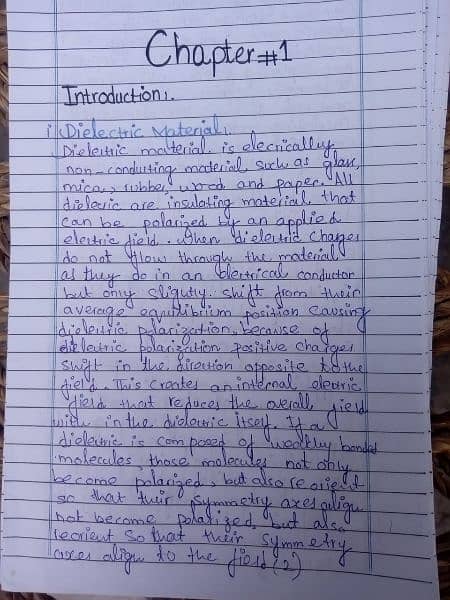 Chapter#1
Introduction:.
i Dielectric Material.
Dielectric material is elecrically
non-conducting material such as glass,
mica, rubber, wood and paper. All
dielecric are insulating material that
can be polarized by an applied
electric field. When dielectric charges
do not flow through the material
as they do in an electrical conductor
but only sligutly. shift from their
average equilibrium position causing
dielectric polarization. because of
dielectric polarization positive charges
swift in the direction opposite to the
field. This creates an internal electric
field that reduces the overall field
with in the dielectric itself. If a
dielectric is composed of weakly bonded
molecules, those molecules not only
become polarized, but also reorient
so that their symmetry axes align
not become polarized, but also
reorient so that their symmetry
axes align to the field (2)